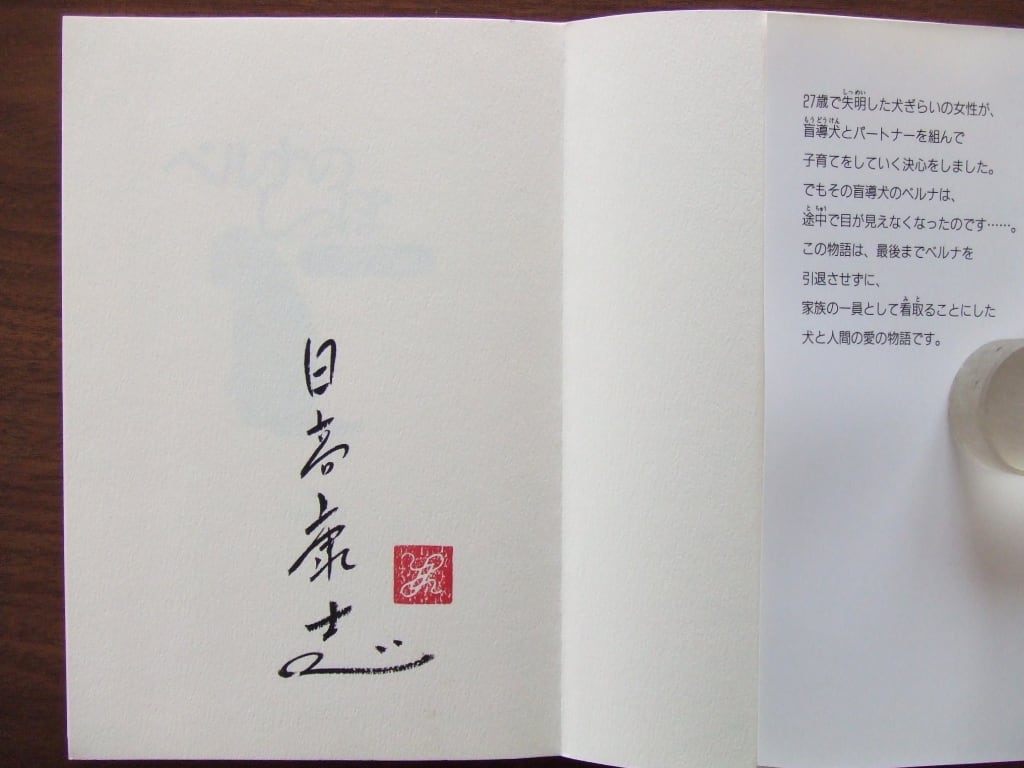 日高康志
27歳で失明した犬ぎらいの女性が、
盲導犬とパートナーを組んで
子育てをしていく決心をしました。
でもその盲導犬のベルナは、
途中で目が見えなくなったのです……。
この物語は、最後までベルナを
引退させずに、
家族の一員として看取ることにした
犬と人間の愛の物語です。